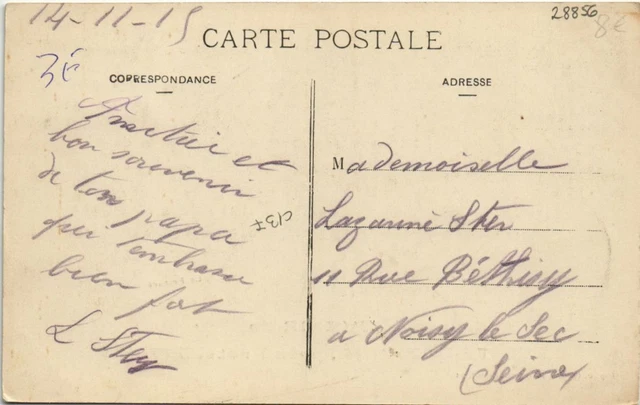 14-11-15
28856
8€
CARTE POSTALE
3€
CORRESPONDANCE
ADRESSE
Amitié et
bon souvenir
de ton papa
qui t'embrasse
bien fort
L Ster
C137
Mademoiselle
Lazanne Ster
11 Rue Béthisy
a Noisy le Sec
(Seine)